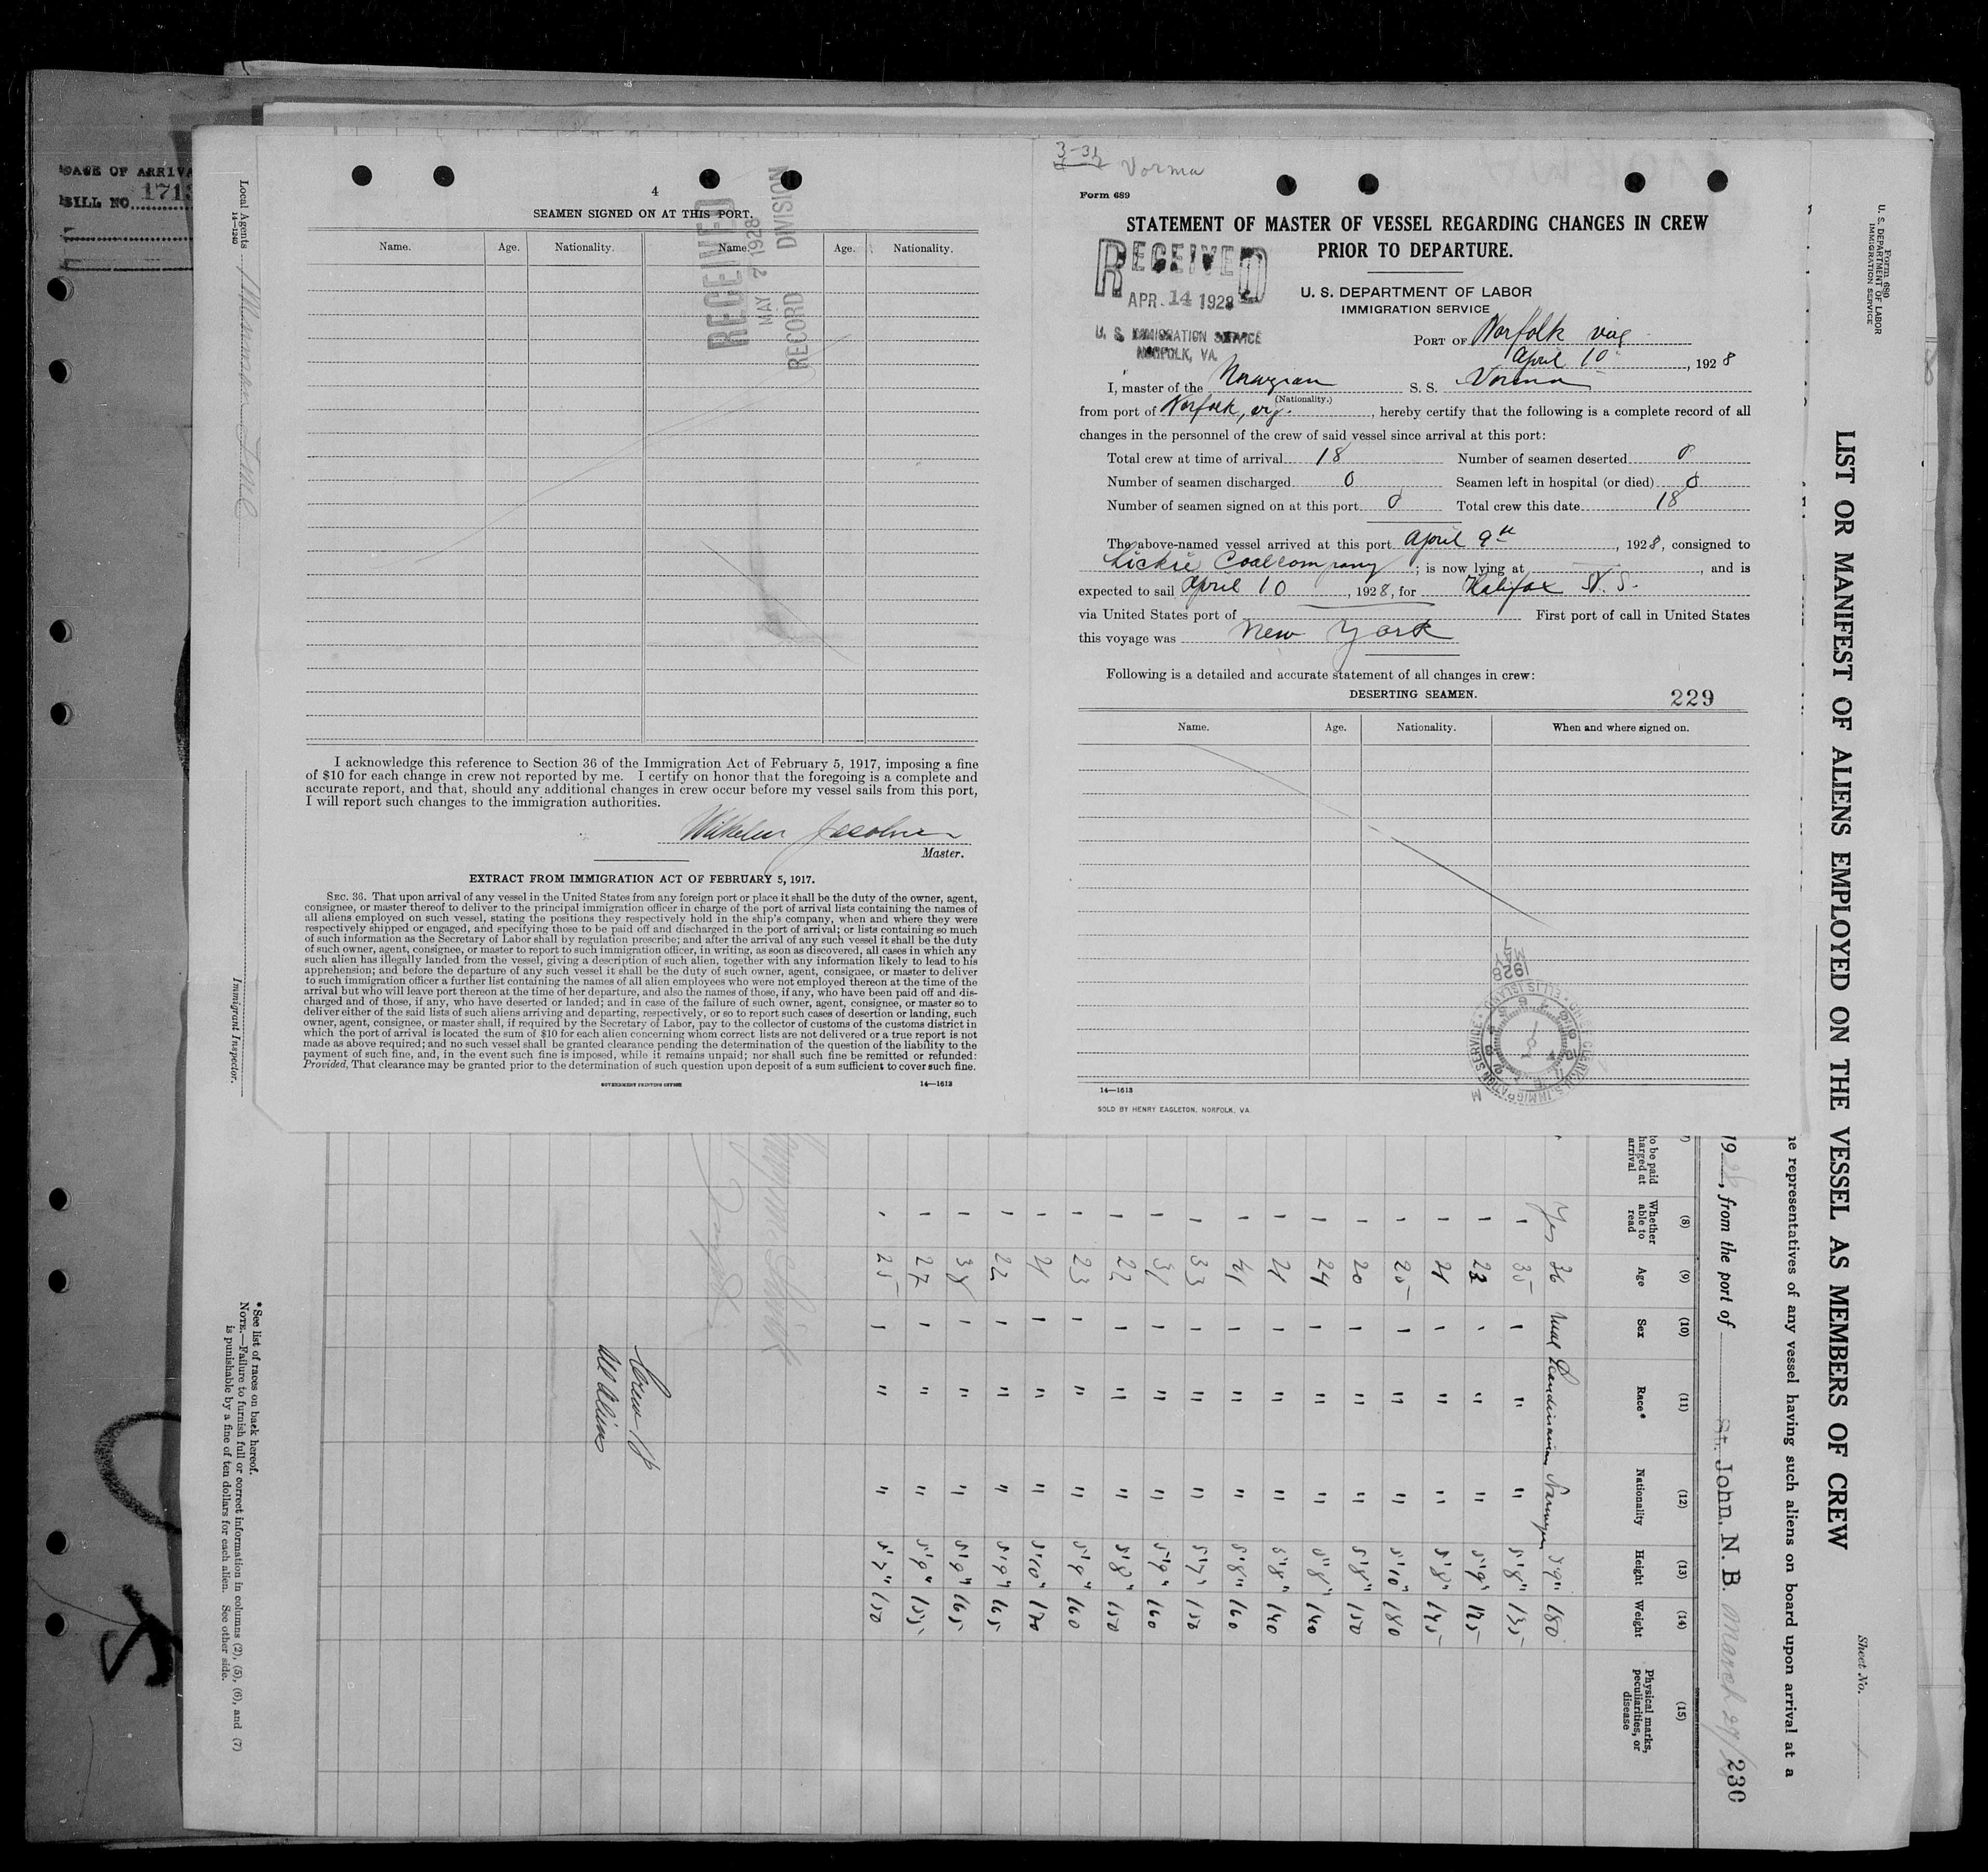 DATE OF ARRIVA
BILL NO. 1713
Local Agents
14—1240
Immigrant Inspector.
4
SEAMEN SIGNED ON AT THIS PORT.
Name. Age. Nationality. Name. Age. Nationality.
RECEIVED
MAY 7 1928
RECORD DIVISION
I acknowledge this reference to Section 36 of the Immigration Act of February 5, 1917, imposing a fine
of $10 for each change in crew not reported by me. I certify on honor that the foregoing is a complete and
accurate report, and that, should any additional changes in crew occur before my vessel sails from this port,
I will report such changes to the immigration authorities.
Wilhelm Jacobsen
Master.
EXTRACT FROM IMMIGRATION ACT OF FEBRUARY 5, 1917.
SEC. 36. That upon arrival of any vessel in the United States from any foreign port or place it shall be the duty of the owner, agent,
consignee, or master thereof to deliver to the principal immigration officer in charge of the port of arrival lists containing the names of
all aliens employed on such vessel, stating the positions they respectively hold in the ship's company, when and where they were
respectively shipped or engaged, and specifying those to be paid off and discharged in the port of arrival; or lists containing so much
of such information as the Secretary of Labor shall by regulation prescribe; and after the arrival of any such vessel it shall be the duty
of such owner, agent, consignee, or master to report to such immigration officer, in writing, as soon as discovered, all cases in which any
such alien has illegally landed from the vessel, giving a description of such alien, together with any information likely to lead to his
apprehension; and before the departure of any such vessel it shall be the duty of such owner, agent, consignee, or master to deliver
to such immigration officer a further list containing the names of all alien employees who were not employed thereon at the time of the
arrival but who will leave port thereon at the time of her departure, and also the names of those, if any, who have been paid off and dis-
charged and of those, if any, who have deserted or landed; and in case of the failure of such owner, agent, consignee, or master so to
deliver either of the said lists of such aliens arriving and departing, respectively, or so to report such cases of desertion or landing, such
owner, agent, consignee, or master shall, if required by the Secretary of Labor, pay to the collector of customs of the customs district in
which the port of arrival is located the sum of $10 for each alien concerning whom correct lists are not delivered or a true report is not
made as above required; and no such vessel shall be granted clearance pending the determination of the question of the liability to the
payment of such fine, and, in the event such fine is imposed, while it remains unpaid; nor shall such fine be remitted or refunded:
Provided, That clearance may be granted prior to the determination of such question upon deposit of a sum sufficient to cover such fine.
GOVERNMENT PRINTING OFFICE 14—1613
3-31 Vorma
Form 689
STATEMENT OF MASTER OF VESSEL REGARDING CHANGES IN CREW
PRIOR TO DEPARTURE.
RECEIVED
APR. 14 1928
U. S. IMMIGRATION SERVICE
NORFOLK, VA.
U. S. DEPARTMENT OF LABOR
IMMIGRATION SERVICE
PORT OF Norfolk
April 10, 1928
I, master of the Norwegian S. S. Vorma
(Nationality.)
from port of Norfolk, , hereby certify that the following is a complete record of all
changes in the personnel of the crew of said vessel since arrival at this port:
Total crew at time of arrival 18 Number of seamen deserted 0
Number of seamen discharged 0 Seamen left in hospital (or died) 0
Number of seamen signed on at this port 0 Total crew this date 18
The above-named vessel arrived at this port April 9th, 1928, consigned to
Coalcompany; is now lying at , and is
expected to sail April 10, 1928, for Halifax N. S.
via United States port of First port of call in United States
this voyage was New York
Following is a detailed and accurate statement of all changes in crew:
DESERTING SEAMEN. 229
Name. Age. Nationality. When and where signed on.
1928
MAY
7
ELLIS ISLAND
14—1613
SOLD BY HENRY EAGLETON, NORFOLK, VA.
Form 680
U. S. DEPARTMENT OF LABOR
IMMIGRATION SERVICE
Sheet No.
LIST OR MANIFEST OF ALIENS EMPLOYED ON THE VESSEL AS MEMBERS OF CREW
he representatives of any vessel having such aliens on board upon arrival at a
1928, from the port of St. John, N. B. March 29/ 230
to be paid
harged at
arrival
(8) (9) (10) (11) (12) (13) (14) (15)
Whether able to read Age Sex Race* Nationality Height Weight Physical marks, peculiarities, or disease
Yes 36 Male Scandinavian Norwegian 5'9" 180
- 35 - " " 5'8" 135
- 23 - " " 5'9"
- 21 - " " 5'8" 145
- 25 - " " 5'10" 180
- 20 - " " 5'8" 150
- 24 - " " 5'8" 140
- 21 - " " 5'8" 140
- 41 - " " 5'8" 160
- 33 - " " 5'7" 150
- 31 - " " 5'9" 160
- 22 - " " 5'8" 150
- 23 - " " 5'9" 160
- 21 - " " 5'10" 170
- 22 - " " 5'9" 165
- 38 - " " 5'9" 165
- 27 - " " 5'9" 155
- 25 - " " 5'7" 150
Crew 18
All Aliens
* See list of races on back hereof.
NOTE.—Failure to furnish full or correct information in columns (2), (5), (6), and (7)
is punishable by a fine of ten dollars for each alien. See other side.